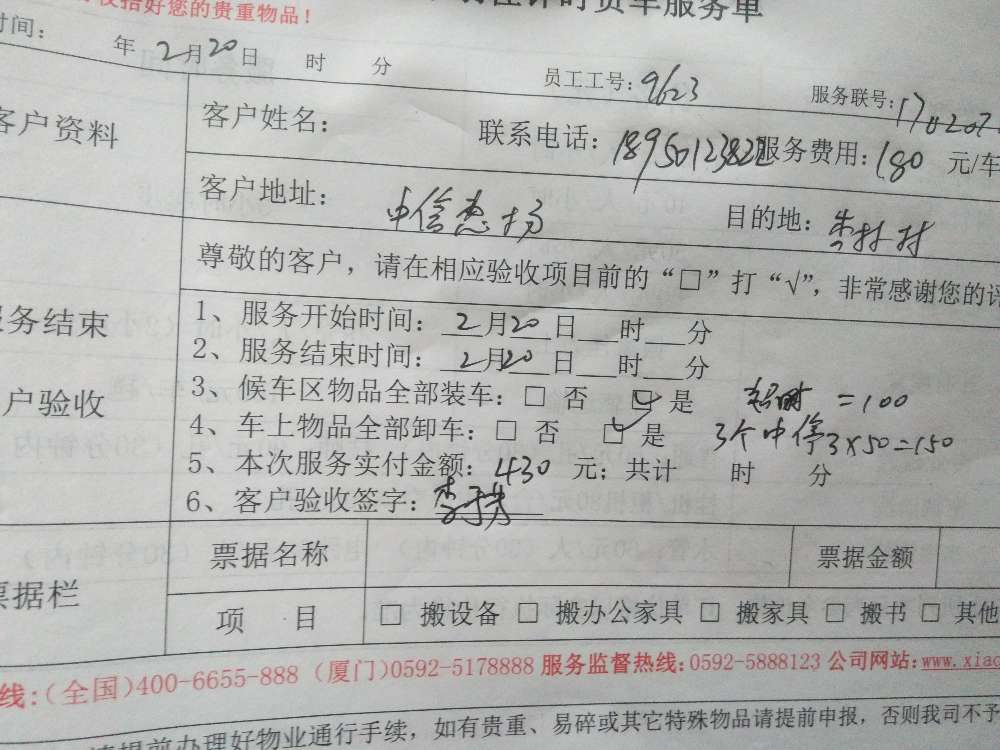 收拾好您的贵重物品！
计时货车服务单
时间： 年 2月20日 时 分 员工工号：9623 服务联号：170207
客户资料 客户姓名： 联系电话：18950123822 服务费用：180 元/车
客户地址： 中信惠扬 目的地：
尊敬的客户，请在相应验收项目前的“□”打“√”，非常感谢您的评
服务结束
1、服务开始时间：2月20日 时 分
2、服务结束时间：2月20日 时 分
客户验收
3、候车区物品全部装车：□ 否 □ 是 超时 =100
4、车上物品全部卸车：□ 否 □ 是 3个中停3×50=150
5、本次服务实付金额：430 元；共计 时 分
6、客户验收签字：
票据栏 票据名称 票据金额
项 目 □ 搬设备 □ 搬办公家具 □ 搬家具 □ 搬书 □ 其他
线：（全国）400-6655-888（厦门）0592-5178888 服务监督热线：0592-5888123 公司网站：www.xiao
请提前办理好物业通行手续，如有贵重、易碎或其它特殊物品请提前申报，否则我司不予